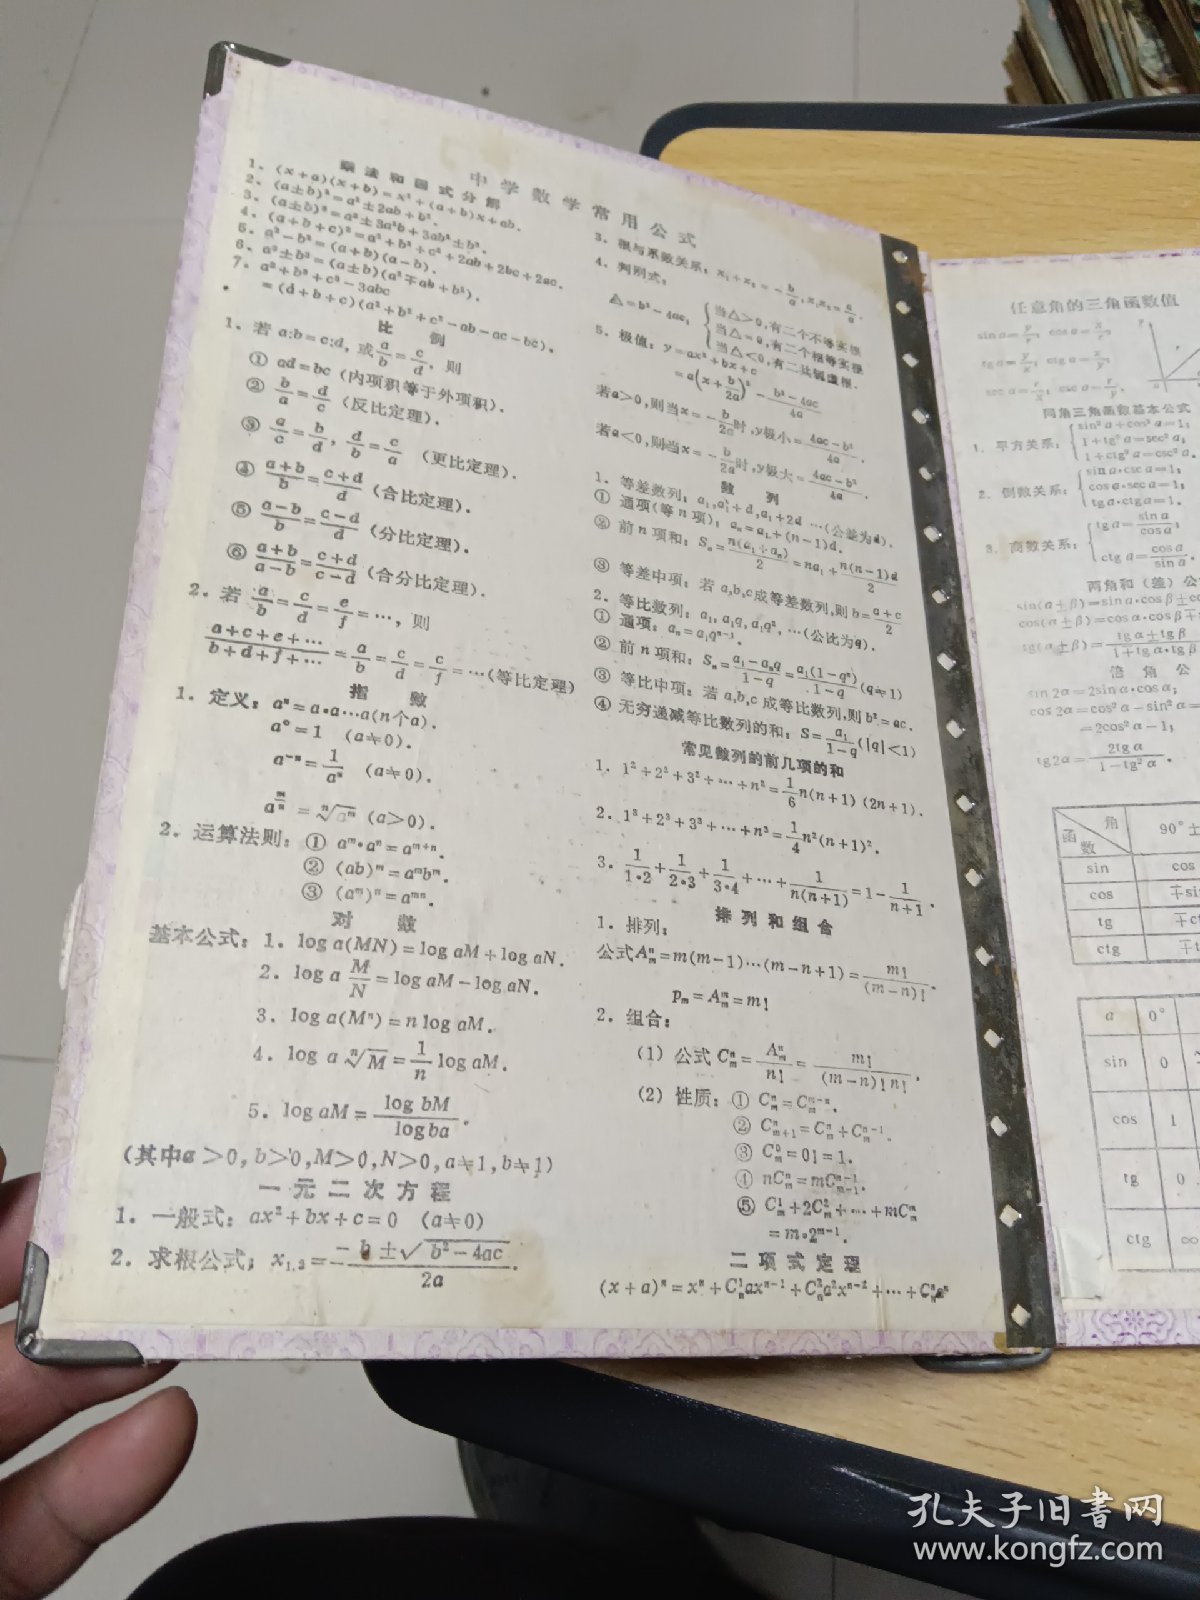 中学数学常用公式
乘法和因式分解
1. (x+a)(x+b)=x²+(a+b)x+ab.
2. (a±b)²=a²±2ab+b².
3. (a±b)³=a³±3a²b+3ab²±b³.
4. (a+b+c)²=a²+b²+c²+2ab+2bc+2ac.
5. a²-b²=(a+b)(a-b).
6. a³±b³=(a±b)(a²∓ab+b²).
7. a³+b³+c³-3abc
=(d+b+c)(a²+b²+c²-ab-ac-bc).
比 例
1. 若 a:b=c:d, 或 a/b=c/d, 则
① ad=bc (内项积等于外项积).
② b/a=d/c (反比定理).
③ a/c=b/d, d/b=c/a (更比定理).
④ (a+b)/b=(c+d)/d (合比定理).
⑤ (a-b)/b=(c-d)/d (分比定理).
⑥ (a+b)/(a-b)=(c+d)/(c-d) (合分比定理).
2. 若 a/b=c/d=e/f=…, 则
(a+c+e+…)/(b+d+f+…)=a/b=c/d=c/f=…(等比定理)
指 数
1. 定义: aⁿ=a•a…a(n个a).
a°=1 (a≠0).
a⁻ⁿ=1/aⁿ (a≠0).
a^(m/n)=ⁿ√aᵐ (a>0).
2. 运算法则: ① aᵐ•aⁿ=aᵐ⁺ⁿ.
② (ab)ᵐ=aᵐbᵐ.
③ (aᵐ)ⁿ=aᵐⁿ.
对 数
基本公式: 1. log a(MN)=log aM+log aN.
2. log a M/N=log aM-log aN.
3. log a(Mⁿ)=n log aM.
4. log a ⁿ√M=1/n log aM.
5. log aM=log bM/log ba.
(其中a>0,b>0,M>0,N>0,a≠1,b≠1)
一元二次方程
1. 一般式: ax²+bx+c=0 (a≠0)
2. 求根公式; x₁,₂=(-b±√(b²-4ac))/2a.
3. 根与系数关系: x₁+x₂=-b/a; x₁x₂=c/a.
4. 判别式:
△=b²-4ac, { 当△>0,有二个不等实根
当△=0,有二个相等实根
当△<0,有二共轭虚根.
5. 极值: y=ax²+bx+c
=a(x+b/2a)²-(b²-4ac)/4a
若a>0,则当x=-b/2a时,y极小=(4ac-b²)/4a.
若a<0,则当x=-b/2a时,y极大=(4ac-b²)/4a.
数 列
1. 等差数列: a₁,a₁+d,a₁+2d …(公差为d).
① 通项(等n项): aₙ=a₁+(n-1)d.
② 前n项和: Sₙ=n(a₁+aₙ)/2=na₁+n(n-1)d/2
③ 等差中项: 若 a,b,c成等差数列,则 b=(a+c)/2
2. 等比数列: a₁,a₁q,a₁q²,…(公比为q).
① 通项: aₙ=a₁qⁿ⁻¹.
② 前n项和: Sₙ=(a₁-aₙq)/(1-q)=a₁(1-qⁿ)/(1-q)(q≠1)
③ 等比中项: 若 a,b,c 成等比数列,则 b²=ac.
④ 无穷递减等比数列的和: S=a₁/(1-q)(|q|<1)
常见数列的前几项的和
1. 1²+2²+3²+…+n²=1/6 n(n+1)(2n+1).
2. 1³+2³+3³+…+n³=1/4 n²(n+1)².
3. 1/1•2+1/2•3+1/3•4+…+1/n(n+1)=1-1/(n+1).
排列和组合
1. 排列:
公式Aₘⁿ=m(m-1)…(m-n+1)=m!/(m-n)!.
pₘ=Aₘᵐ=m!
2. 组合:
(1) 公式 Cₘⁿ=Aₘⁿ/n!=m!/(m-n)!n!.
(2) 性质: ① Cₘⁿ=Cₘᵐ⁻ⁿ.
② Cₘ₊₁ⁿ=Cₘⁿ+Cₘⁿ⁻¹.
③ Cₘ⁰=0!=1.
④ nCₘⁿ=mCₘ₋₁ⁿ⁻¹.
⑤ Cₘ¹+2Cₘ²+…+mCₘᵐ
=m•2ᵐ⁻¹.
二项式定理
(x+a)ⁿ=xⁿ+Cₙ¹axⁿ⁻¹+Cₙ²a²xⁿ⁻²+…+Cₙⁿaⁿ
任意角的三角函数值
sin α=y/r, cos α=x/r,
tg α=y/x, ctg α=x/y,
sec α=r/x, csc α=r/y.
同角三角函数基本公式
1. 平方关系: { sin²α+cos²α=1;
1+tg²α=sec²α,
1+ctg²α=csc²α.
2. 倒数关系: { sin α•csc α=1;
cos α•sec α=1;
tg α•ctg α=1.
3. 商数关系: { tg α=sin α/cos α;
ctg α=cos α/sin α.
两角和(差)公
sin(α±β)=sin α•cos β±co
cos(α±β)=cos α•cos β∓s
tg(α±β)=(tg α±tg β)/(1∓tg α•tg β
倍 角 公
sin 2α=2sin α•cos α;
cos 2α=cos²α-sin²α=
=2cos²α-1;
tg2α=2tg α/(1-tg²α).
角 函数 90°±
sin cos
cos ∓si
tg ∓ct
ctg ∓t
α 0°
sin 0
cos 1
tg 0
ctg ∞
孔夫子旧书网
www.kongfz.com